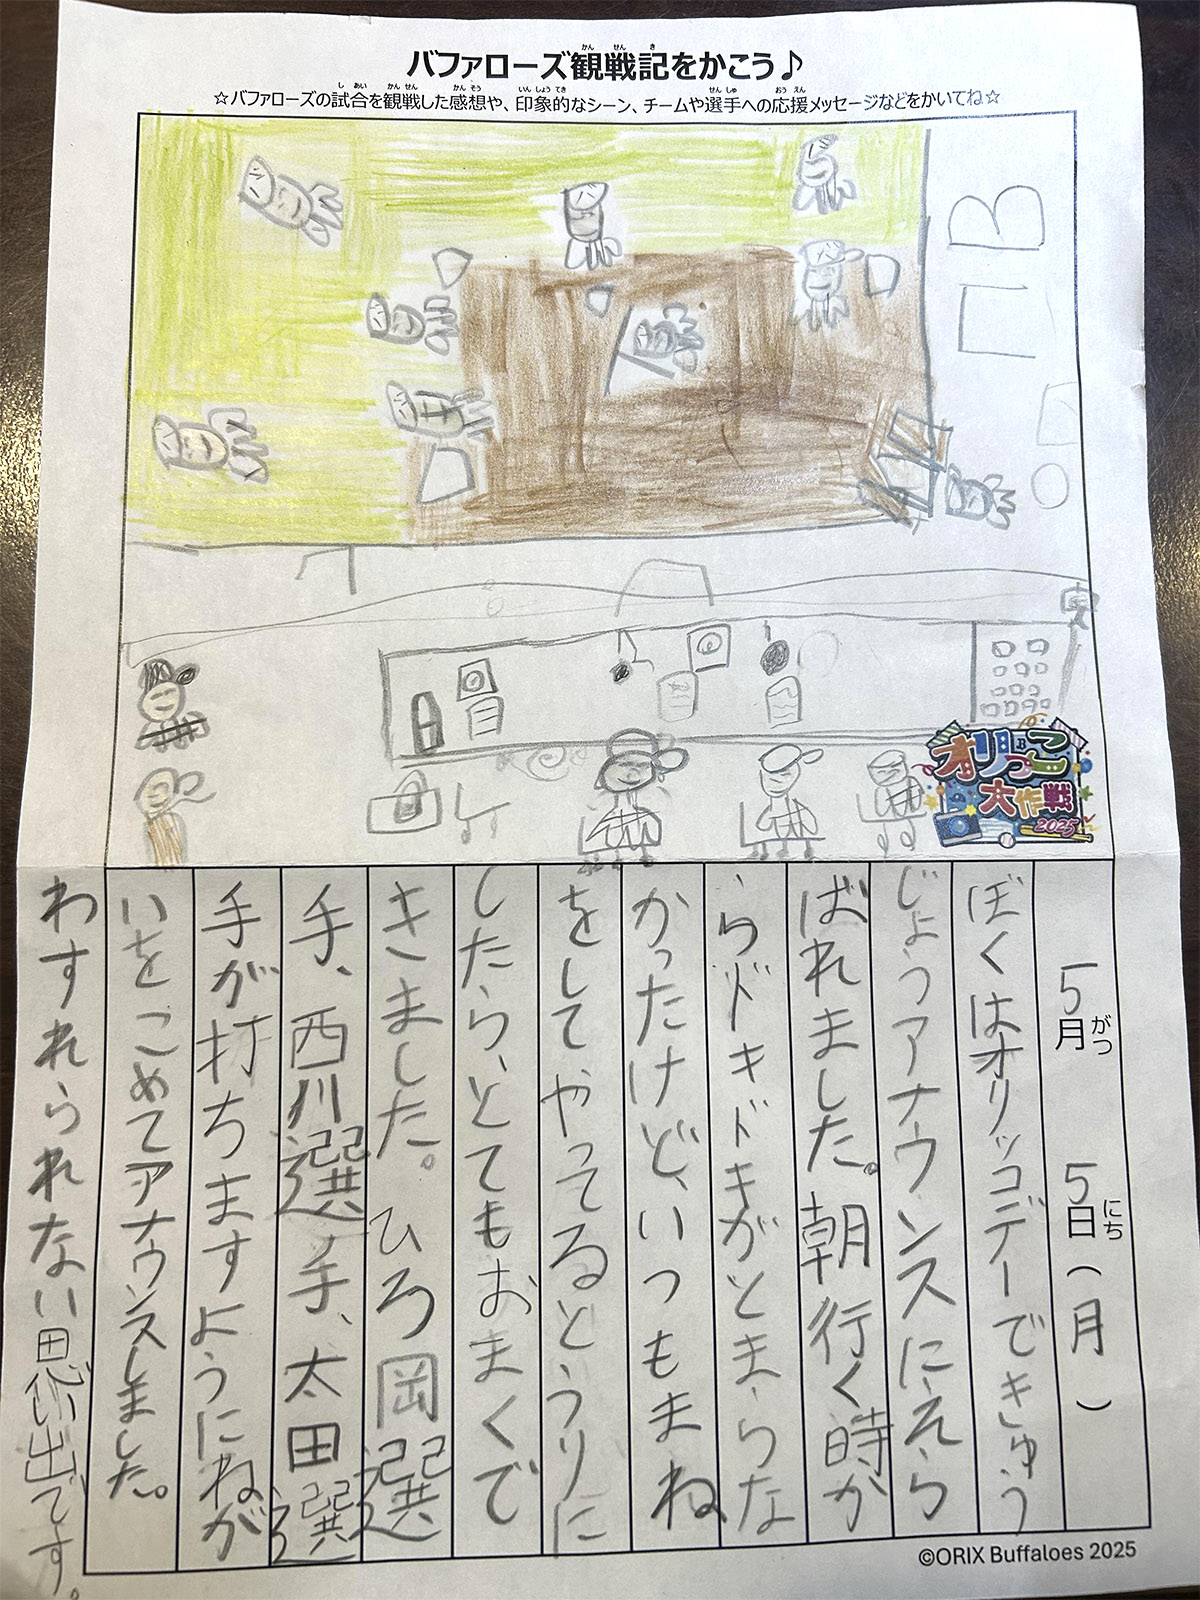 バファローズ観戦記をかこう♪
☆バファローズの試合を観戦した感想や、印象的なシーン、チームや選手への応援メッセージなどをかいてね☆
オリっこ
大作戦
2025
5月5日(月)
ぼくはオリッコデーできゅう
じょうアナウンスにえら
ばれました。朝行く時か
らドキドキがとまらな
かったけど、いつもまね
をしてやってるとうりに
したら、とてもおまくで
きました。ひろ岡選
手、西川選手、太田選
手が打ちますようにねが
いをこめてアナウンスしました。
わすれられない思い出です。
©ORIX Buffaloes 2025